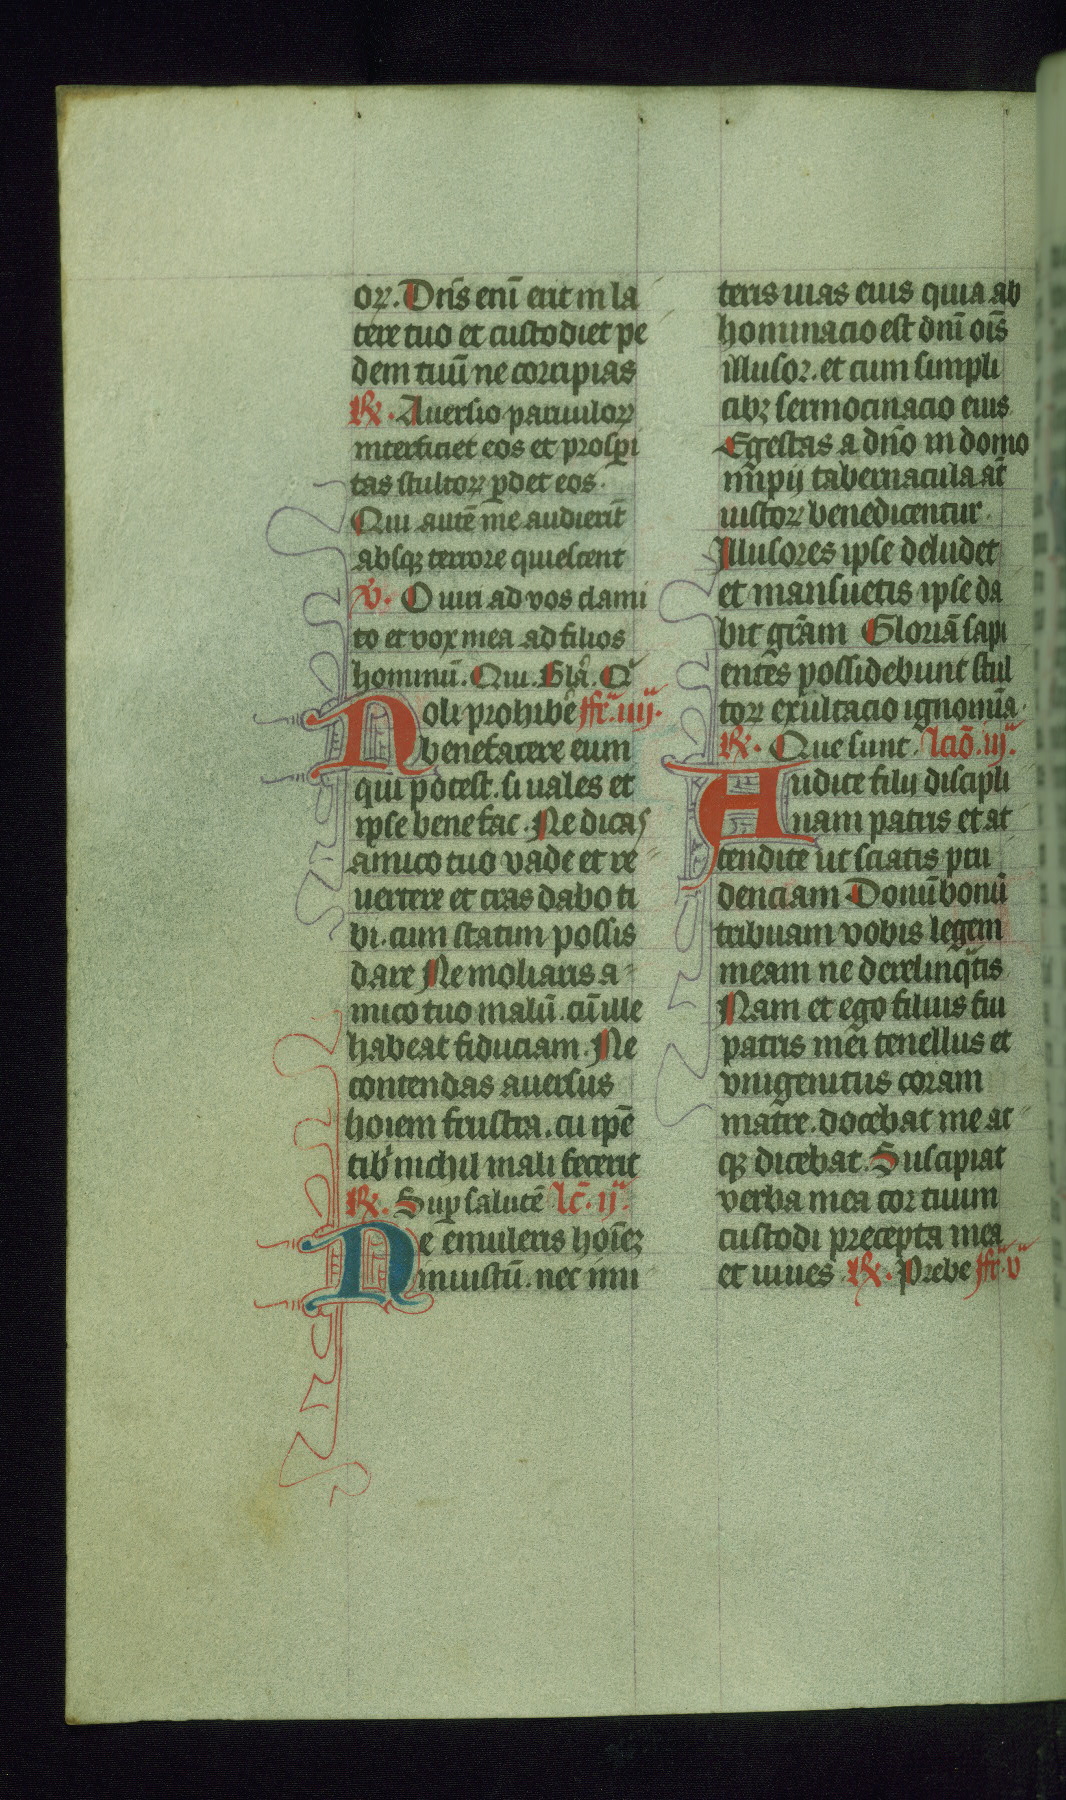 oꝝ. Dn̄s eni̅ erit in la
tere tuo et custodiet pe
dem tuu̅ ne corcipias
R̸. Auersio paruuloꝝ
interficiet eos et prosꝑi
tas stultoꝝ ꝑdet eos.
Qui aute̅ me audieri̅t
absqꝫ terrore quiescent
V̸. O uiri ad vos clami
to et vox mea ad filios
hominu̅. Qui. Gla̅. Q
Noli prohibe̅ ffr̃. iiij.
benefacere eum
qui potest. si uales et
ip̅se bene fac. Ne dicas
amico tuo vade et re
uertere et cras dabo ti
bi. cum statim possis
dare Ne moliaris a
mico tuo malu̅. cu̅ ille
habeat fiduciam. Ne
contendas auersus
hoiem frustra. cu ip̅e
tib nichil mali fecerit
R̸. Suꝑ salute̅ lc̅. ij.
Ne emuleris hoi̅eꝫ
iniustu̅. nec imi
teris uias eius quia ab
hominacio est dn̅i oi̅s
illusor. et cum simpli
cibꝫ sermocinacio eius
Egestas a dn̅o in domo
impij tabernacula at̅
iustoꝝ benedicentur
Illusores ipse deludet
et mansuetis ipse da
bit gr̅am Gloria̅ sapi
entes possidebunt stul
toꝝ exultacio ignomi̅a.
R̸. Que sunt. lcio̅. iij.
Audite filij discipli
nam patris et at
tendite ut sciatis pru
denciam Donu̅ bonu̅
tribuam vobis legem
meam ne derelinq̅tis
Nam et ego filius fui
patris mei tenellus et
vnigenitus coram
matre. docebat me at
qꝫ dicebat. Suscipiat
verba mea cor tuum
custodi precepta mea
et uiues R̸. Prebe ffr̃. v